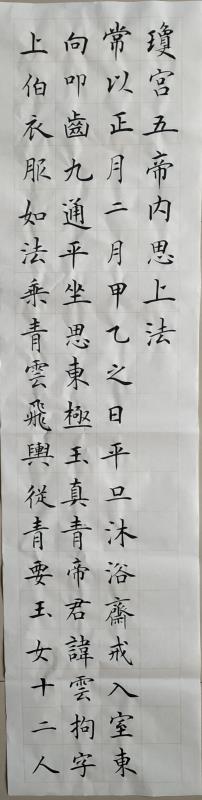 瓊宮五帝内思上法
常以正月二月甲乙之日平旦沐浴齋戒入室東
向叩齒九通平坐思東極玉真青帝君諱雲拘字
上伯衣服如法乘青雲飛輿從青要玉女十二人